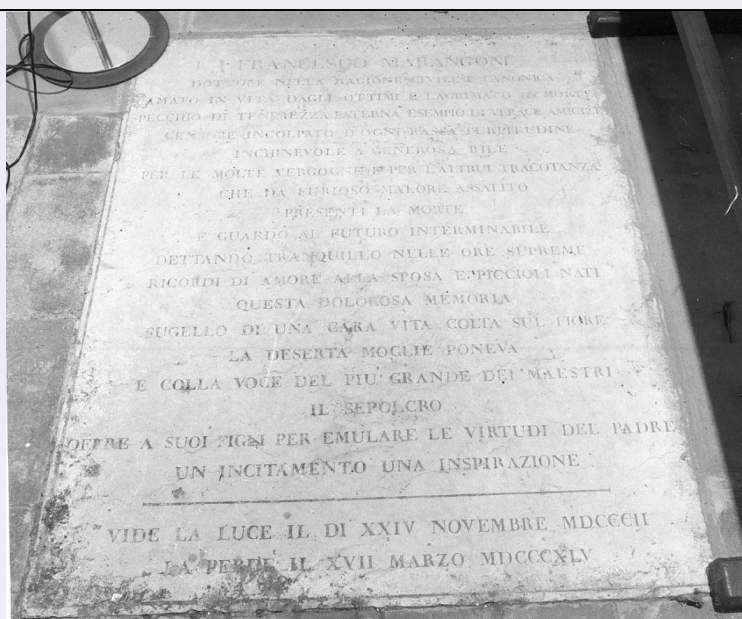 FRANCESCO MARANGONI
DOTTORE NELLA RAGIONE CIVILE E CANONICA
AMATO IN VITA DAGLI OTTIMI E LAGRIMATO IN MORTE
SPECCHIO DI TENEREZZA PATERNA ESEMPIO DI VERACE AMICIZIA
CENSORE INCOLPATO D'OGNI BASSA TURPITUDINE
INCHINEVOLE A GENEROSA BILE
PER LE MOLTE VERGOGNE E PER L'ALTRUI TRACOTANZA
CHE DA FURIOSO MALORE ASSALITO
PRESENTI LA MORTE
E GUARDÒ AL FUTURO INTERMINABILE
DETTANDO TRANQUILLO NELLE ORE SUPREME
RICORDI DI AMORE ALLA SPOSA E PICCIOLI NATI
QUESTA DOLOROSA MEMORIA
SUGELLO DI UNA CARA VITA COLTA SUL FIORE
LA DESERTA MOGLIE PONEVA
E COLLA VOCE DEL PIU' GRANDE DEI MAESTRI
IL SEPOLCRO
OFFRE A SUOI FIGLI PER EMULARE LE VIRTUDI DEL PADRE
UN INCITAMENTO UNA INSPIRAZIONE
VIDE LA LUCE IL DI XXIV NOVEMBRE MDCCCII
LA PERDÈ IL XVII MARZO MDCCCXLV